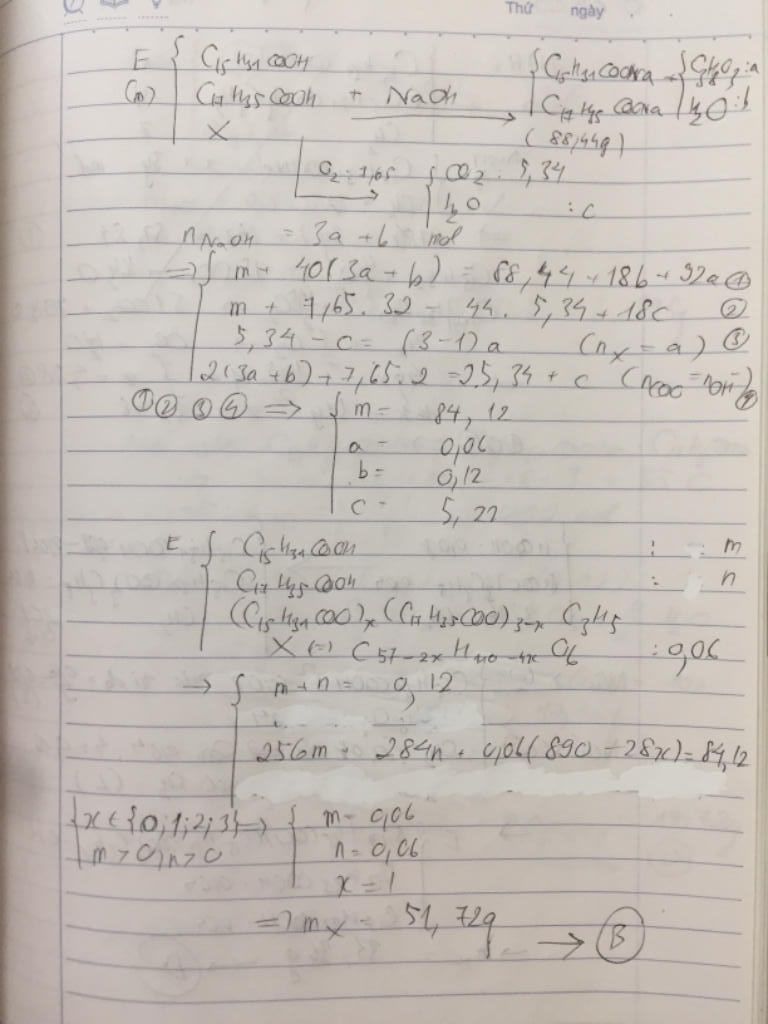 Thứ ngày
E { C15H31COOH { C15H31COONa + { C3H8O3 : a
(m) { C17H35COOH + NaOH → { C17H35COONa { H2O : b
X (88,44g)
O2 : 7,65 → { CO2 : 5,34
{ H2O : c
nNaOH = 3a + b mol
=> { m + 40(3a + b) = 88,44 + 18b + 92a ①
m + 7,65.32 = 44. 5,34 + 18c ②
5,34 - c = (3-1)a (nX = a) ③
2(3a+b) + 7,65.2 = 2.5,34 + c (nCOO = nOH-) ④
① ② ③ ④ => { m = 84,12
a = 0,06
b = 0,12
c = 5,22
E { C15H31COOH : m
C17H35COOH : n
(C15H31COO)x(C17H35COO)3-x C3H5
X (=) C57-2x H110-4x O6 : 0,06
→ { m + n = 0,12
256m + 284n + 0,06(890 - 28x) = 84,12
{ x ∈ {0;1;2;3} => { m = 0,06
m > 0, n > 0 n = 0,06
x = 1
=> mX = 51,72g → B